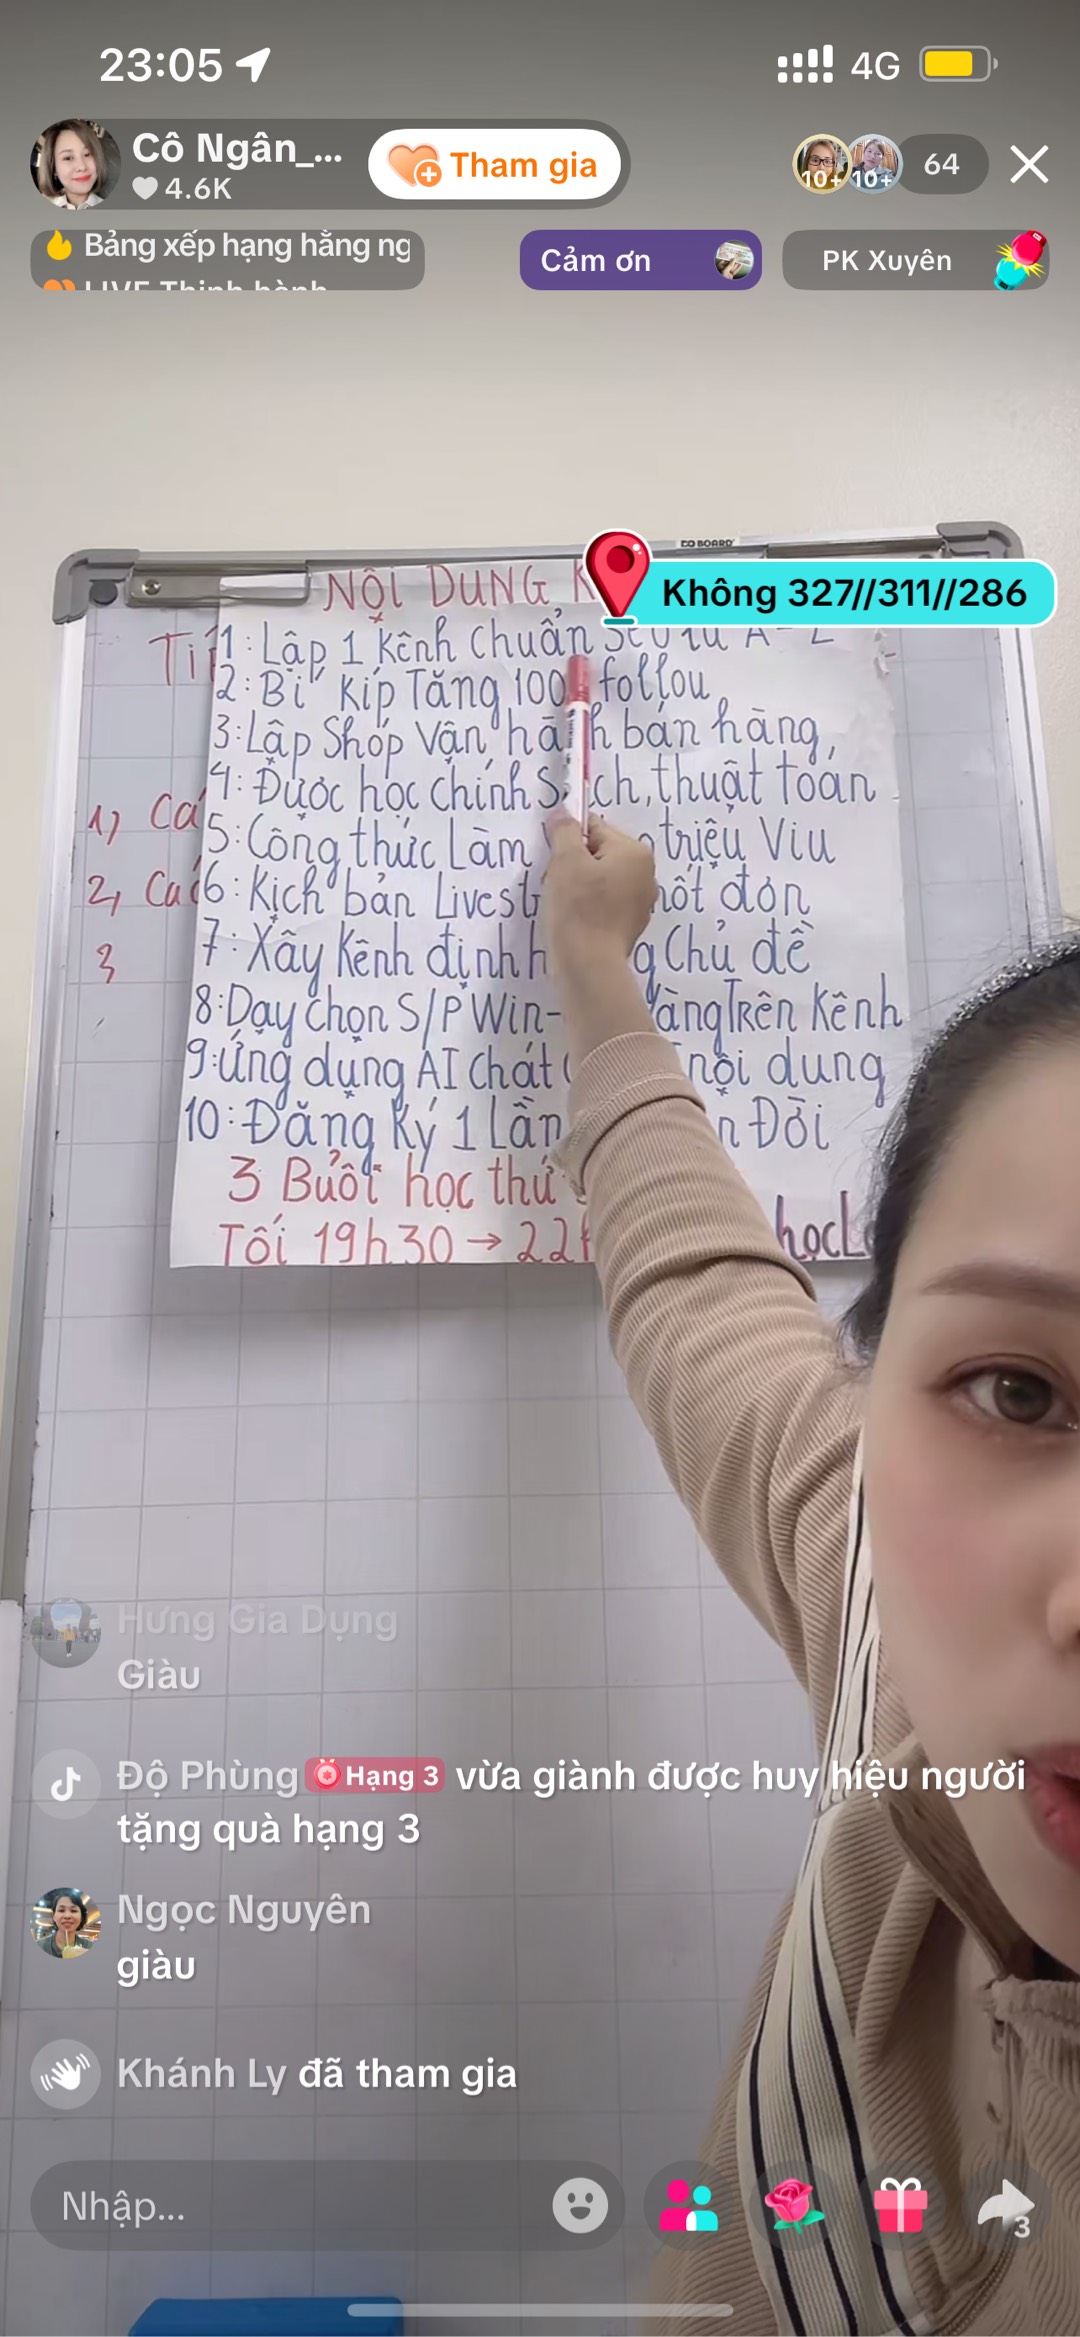 23:05
4G
Cô Ngân_...
4.6K
Tham gia
10+
10+
64
Bảng xếp hạng hằng ng
LIVE Thịnh hành
Cảm ơn
PK Xuyên
NỘI DUNG K
Không 327//311//286
1: Lập 1 Kênh Chuẩn SEO từ A - Z
2: Bí Kíp Tăng 100 follou
3: Lập Shop Vận hành bán hàng,
4: Được học chính Sách, thuật toán
1) Cá
5: Công thức Làm triệu Viu
2, Các
6: Kịch bản Livest hốt đơn
3
7: Xây Kênh định h g Chủ đề
8: Dạy chọn S/P Win- Vàng Trên Kênh
9: Ứng dụng AI Chát nội dung
10: Đăng Ký 1 Lần n Đời
3 Buổi học thử
Tối 19h30 → 22h
học
Hưng Gia Dụng
Giàu
Độ Phùng Hạng 3 vừa giành được huy hiệu người
tặng quà hạng 3
Ngọc Nguyên
giàu
Khánh Ly đã tham gia
Nhập...
3